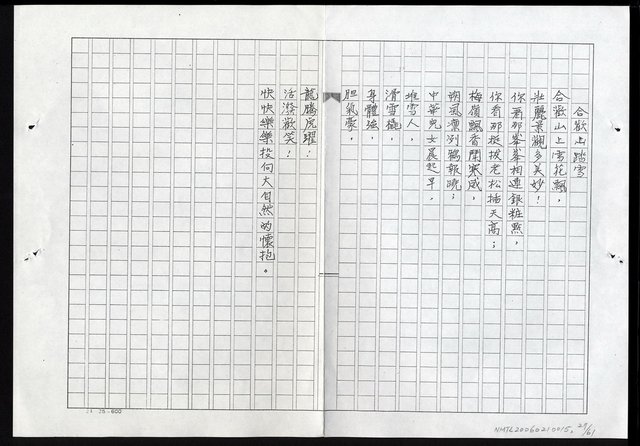 合歡山踏雪
合歡山上雪花飄，
壯麗景觀多美妙！
你看那峯峯相連銀粧點，
你看那挺拔老松插天高；
梅嶺飄香鬥寒威，
朔風凛冽鷄報曉；
中華兒女晨起早，
堆雪人，
滑雪撬，
身體強，
胆氣豪，
龍騰虎躍！
活潑歡笑！
快快樂樂投向大自然的懷抱。
JS-600
NMTL20060210015,
29/61